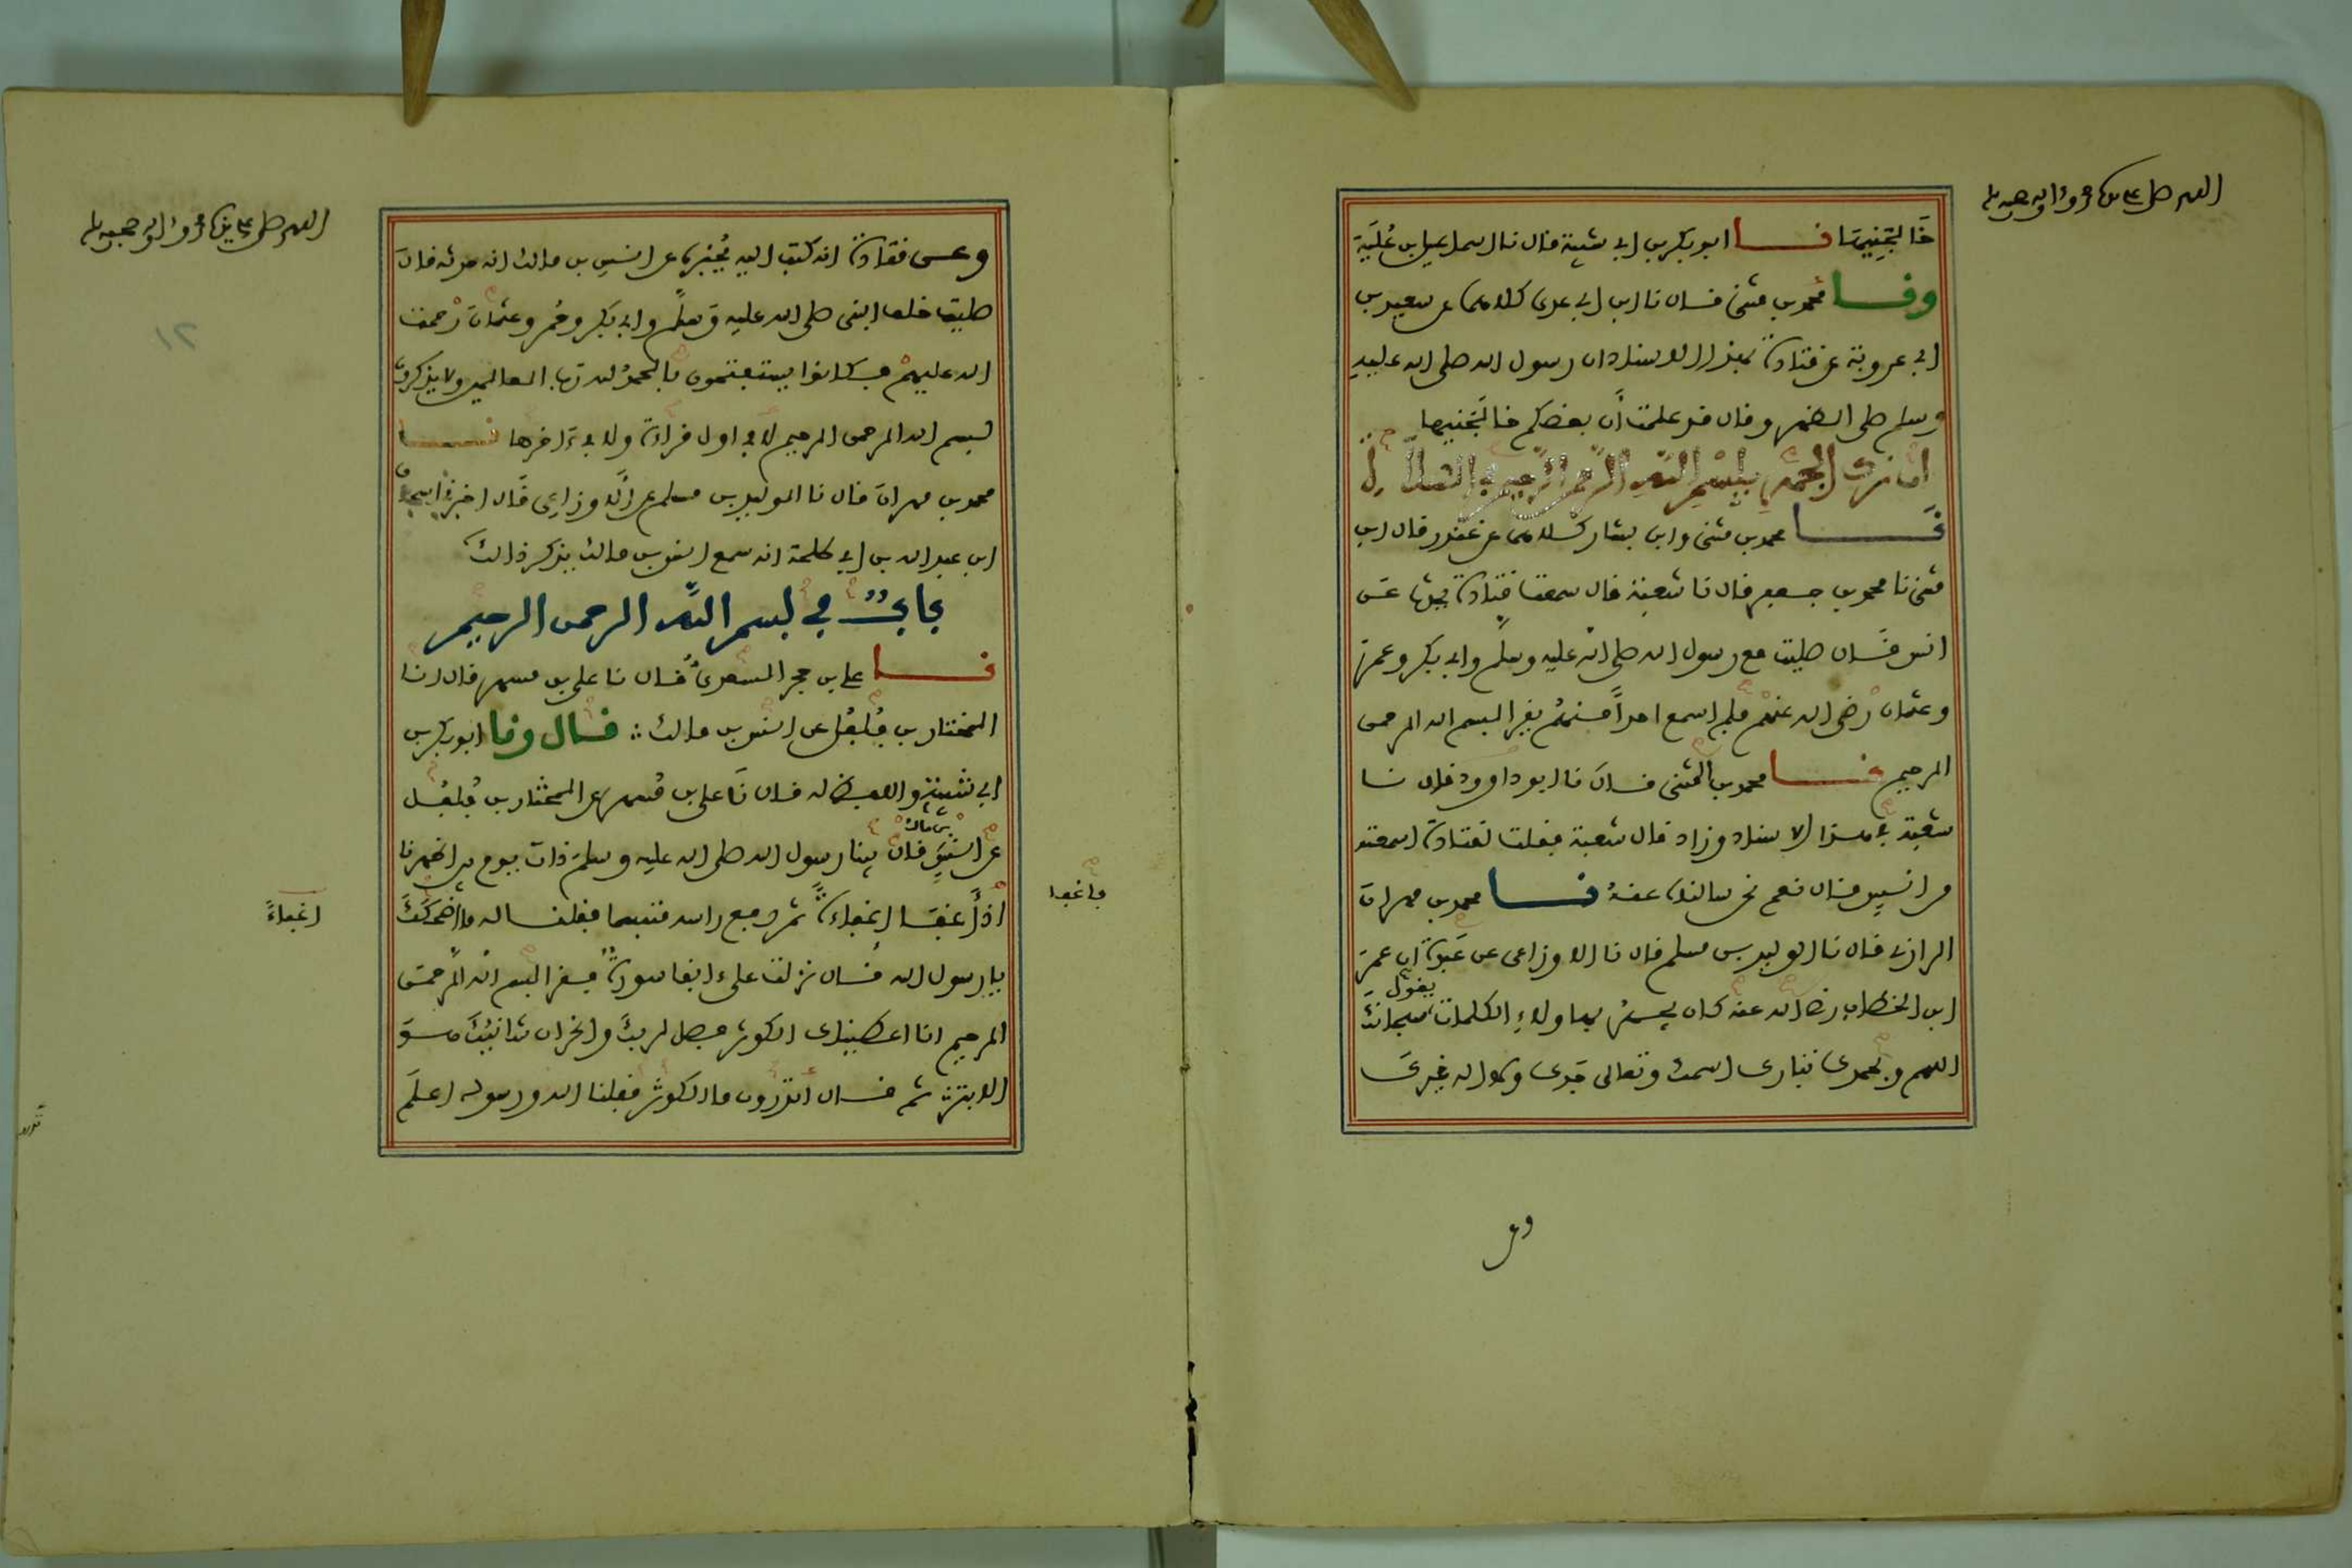 اللهم صل على سيدنا محمد وآله وصحبه
خالجنيها نا ابو بكر بن ابي شيبة قال نا اسماعيل بن علية
ونا محمد بن مثنى قال نا ابن ابي عدي كلاهما عن سعيد بن
ابي عروبة عن قتادة بهذا الاسناد ان رسول الله صلى الله عليه
وسلم صلى الظهر وقال قد علمت أن بعضكم خالجنيها
ترك الجهر ببسم الله الرحمن الرحيم في الصلاة
نا محمد بن مثنى وابن بشار كلاهما عن غندر قال ابن
مثنى نا محمد بن جعفر قال نا شعبة قال سمعت قتادة يحدث عن
انس قال صليت مع رسول الله صلى الله عليه وسلم وابي بكر وعمر
وعثمان رضي الله عنهم فلم اسمع احدا منهم يقرا بسم الله الرحمن
الرحيم نا محمد بن المثنى قال نا ابو داوود قال نا
شعبة في هذا الاسناد وزاد قال شعبة فقلت لقتادة اسمعته
من انس قال نعم نحن سالناه عنه نا محمد بن مهران
الرازي قال نا الوليد بن مسلم قال نا الاوزاعي عن عبدة ان عمر
ابن الخطاب رضي الله عنه كان يجهر بهاولاء الكلمات يقول سبحانك
اللهم وبحمدك تبارك اسمك وتعالى جدك ولا اله غيرك
وعن
اللهم صل على سيدنا محمد وآله وصحبه
١٢
وعن قتادة انه كتب اليه يخبره عن انس بن مالك انه حدثه قال
صليت خلف النبي صلى الله عليه وسلم وابي بكر وعمر وعثمان رحمت
الله عليهم فكانوا يستفتحون بالحمد لله رب العالمين ولا يذكرون
بسم الله الرحمن الرحيم لا في اول قراءة ولا في ءاخرها نا
محمد بن مهران قال نا الوليد بن مسلم عن الاوزاعي قال اخبرني اسحاق
ابن عبد الله بن ابي طلحة انه سمع انس بن مالك يذكر ذالك
باب في بسم الله الرحمن الرحيم
نا علي بن حجر السعدي قال نا علي بن مسهر قال انا
المختار بن فلفل عن انس بن مالك قال ونا ابو بكر بن
ابي شيبة واللفظ له قال نا علي بن مسهر عن المختار بن فلفل
عن انس بن مالك قال بينا رسول الله صلى الله عليه وسلم ذات يوم بين اظهرنا
اذ أغفا إغفاءة ثم رفع راسه متبسما فقلنا له ما أضحكك
يا رسول الله قال نزلت علي ءانفا سورة فقرا بسم الله الرحمن
الرحيم انا اعطيناك الكوثر فصل لربك وانحر ان شانئك هو
الابتر ثم قال أتدرون ما الكوثر فقلنا الله ورسوله اعلم
فاغفا
اغفاءً